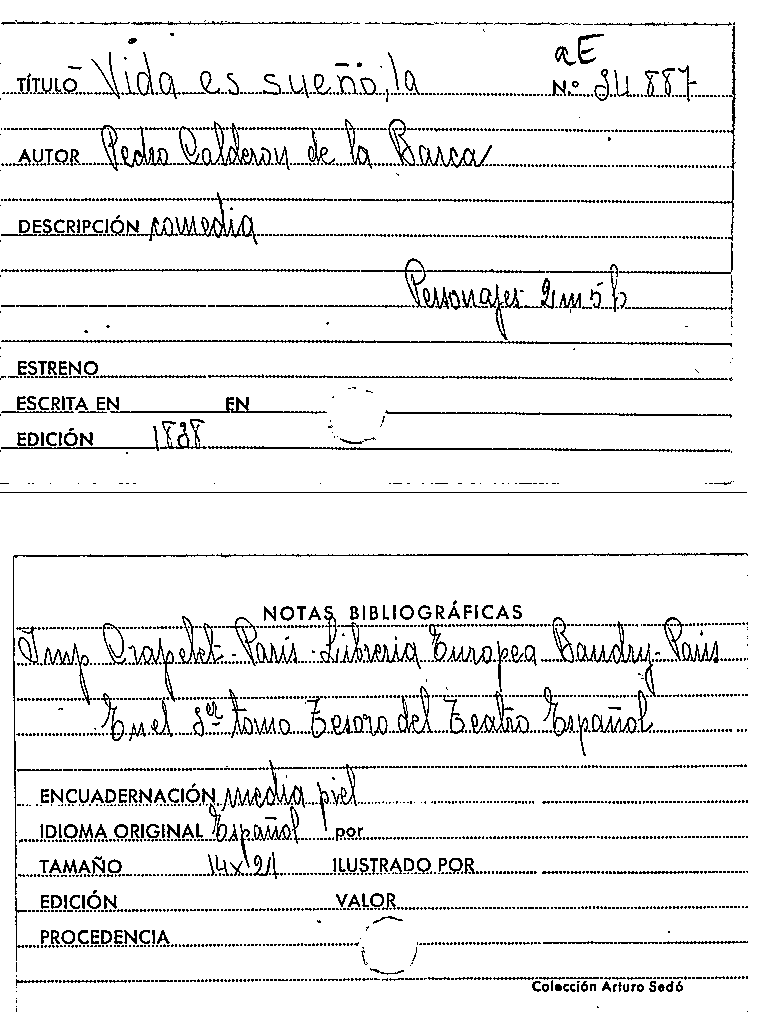 aE
TÍTULO Vida es sueño, la N.º 34887
AUTOR Pedro Calderon de la Barca
DESCRIPCIÓN comedia
Personajes 2m 5h
ESTRENO
ESCRITA EN EN
EDICIÓN 1838
NOTAS BIBLIOGRÁFICAS
Imp Crapelet - París - Libreria Europea Baudry - Paris
En el 3er tomo Tesoro del Teatro Español
ENCUADERNACIÓN media piel
IDIOMA ORIGINAL Español por
TAMAÑO 14x21 ILUSTRADO POR
EDICIÓN VALOR
PROCEDENCIA
Colección Arturo Sedó